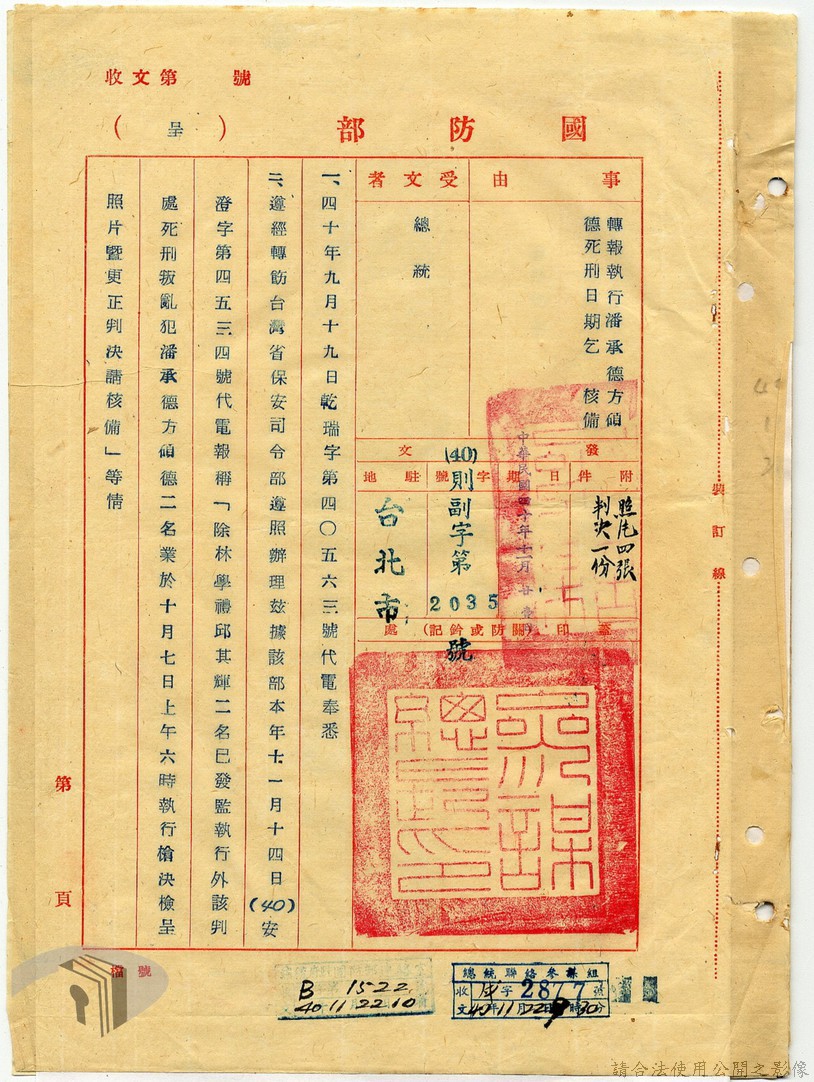 收文第　　號
國防部
（呈）
事由
轉報執行潘承德方碩
德死刑日期乞　核備
受文者
總統
發文
附件
照片四張
判決一份
日期
中華民國四十年十一月廿壹日
字號
(40)則副字第2035號
駐地
台北市
蓋印(關防或鈐記)處
參謀總長印
一、四十年九月十九日乾瑞字第四〇五六三號代電奉悉
二、遵經轉飭台灣省保安司令部遵照辦理茲據該部本年十一月十四日(40)安
澄字第四五三四號代電報稱「除林學禮邱其輝二名已發監執行外該判
處死刑叛亂犯潘承德方碩德二名業於十月七日上午六時執行槍決檢呈
照片暨更正判決請核備」等情
裝訂線
第　頁
檔號
總統聯絡參謀組
收 字2877號
文40年11月22日9時30分
B 1522
40 11 22 10
請合法使用公開之影像